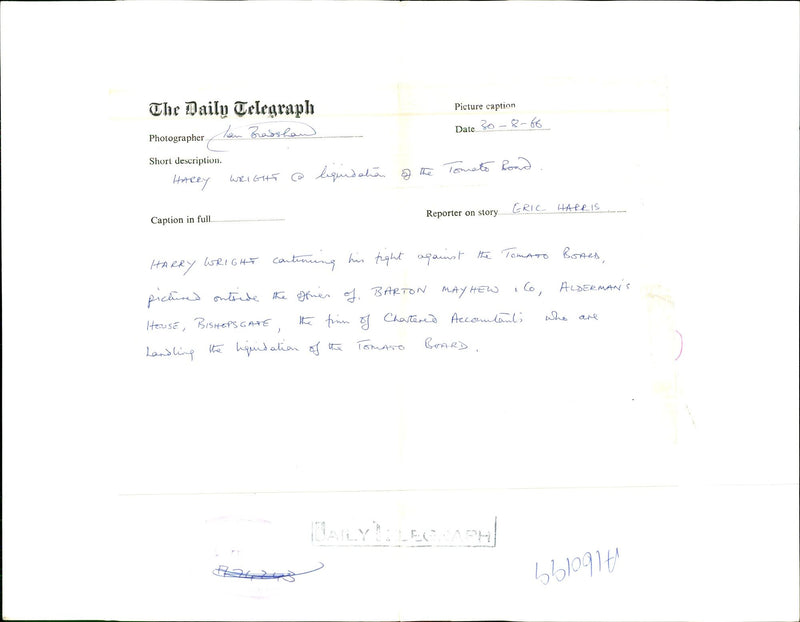 The Daily Telegraph
Picture caption
Photographer Ian Bradshaw
Date 30-8-66
Short description.
HARRY WRIGHT @ liquidation of the Tomato Board.
Caption in full
Reporter on story ERIC HARRIS
HARRY WRIGHT continuing his fight against the TOMATO BOARD,
pictured outside the offices of BARTON MAYHEW & Co, ALDERMAN'S
HOUSE, BISHOPSGATE, the firm of Chartered Accountants who are
handling the liquidation of the TOMATO BOARD.
DAILY TELEGRAPH
A160199